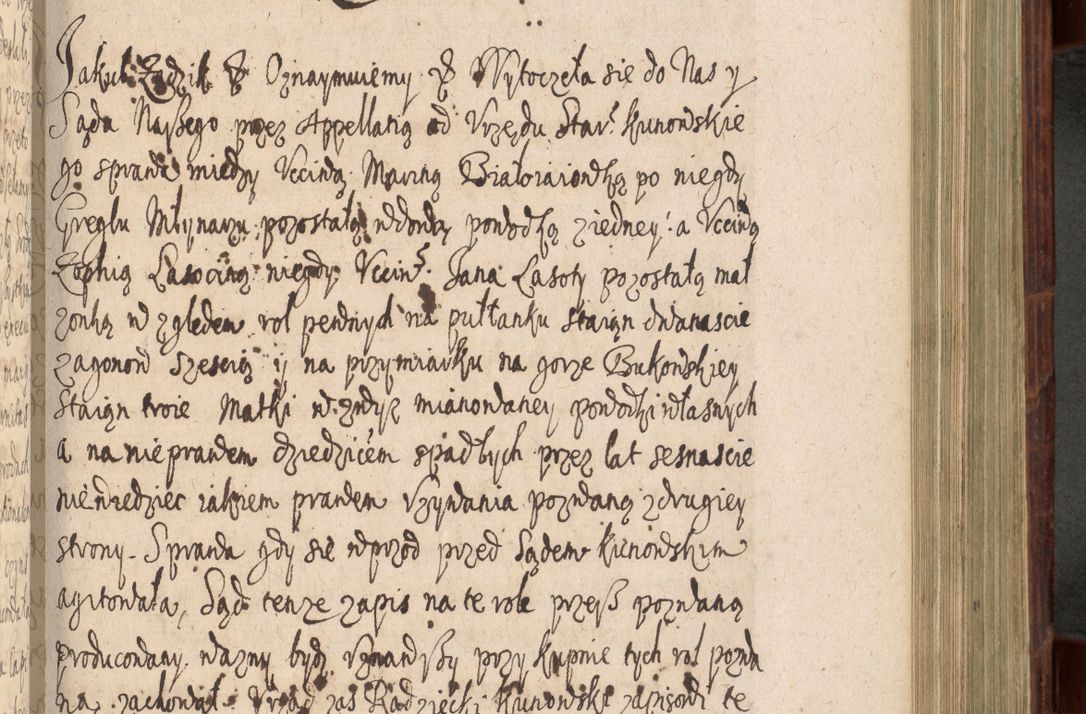 Jakub Zadzik & Oznaymuiemy & Wytoczeła sie do Nas y
Sądu Naszego przez Appellatią od Vrzędu Star. Kunowskie
go sprawa między Vcciwą Maryną Białoraiondką po niegdy
Greglu Młynarzu pozostałą wdową powodką z iedney: a Vcciwą
Zophią Lasociną niegdy Vcciwˢ. Jana Lasoty pozostałą mał
zonką w zględem rol pewnych na pułłanku staiąn dwanascie
zagonow szescią y na przymiarku na gorze Bukowskiey
Staiąn troie Matki w zwysz mianowaney powodki własnych
a na nie prawem dziedzicem spadłych przez lat sesnascie
niewiedziec iakiem prawem vzywania pozwaną z drugiey
strony. Sprawa gdy się wprzod przed Sądem Kunowskim
agitowała, Sąd tenze zapis na te role przesz pozwaną
producowany wazny bydz vznawszy przy kupnie tych rol pozwa
ną zachował. Vrząd zas Radziecki Kunowski zapisowi te